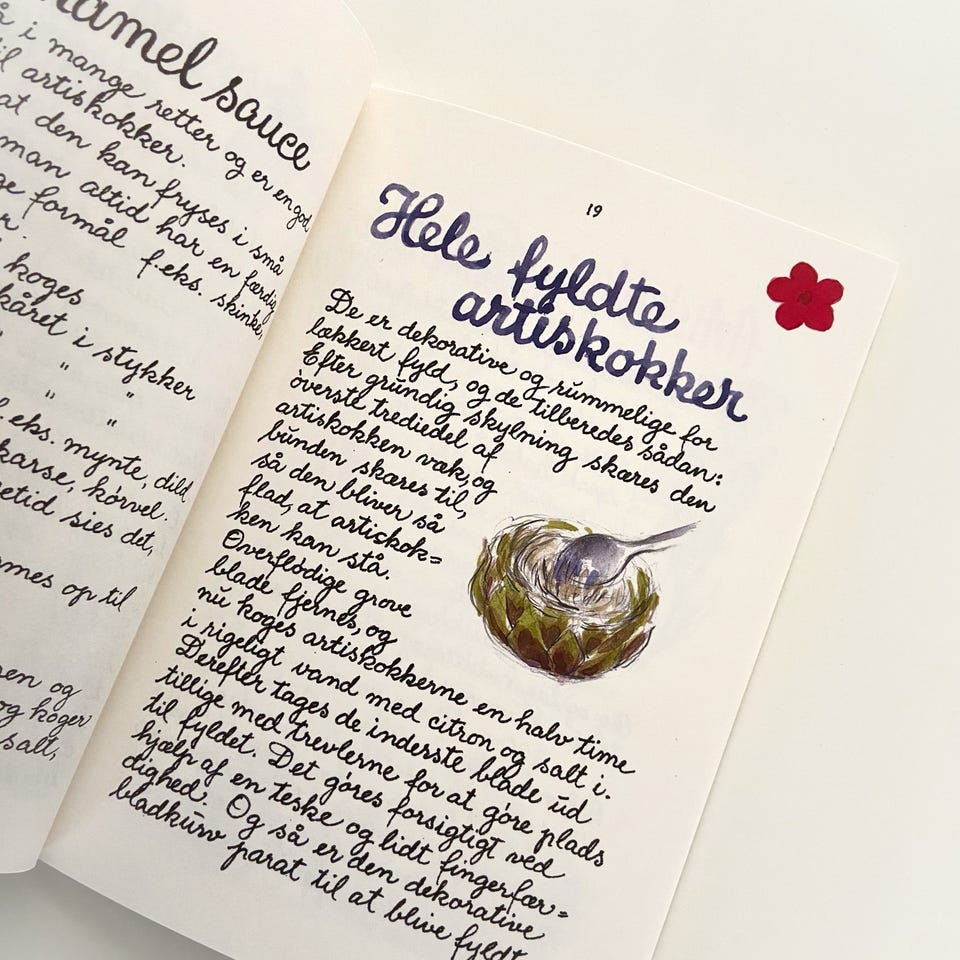 amel sauce
i mange retter og er en god
til artiskokker.
at den kan fryses i små
man altid har en færdig
ge formål f.eks. skinke,
r.
koges
kåret i stykker
" "
" "
f.eks. mynte, dild
karse, kørvel.
etid sies det,
rmes op til
en og
og koger
salt,
19
Hele fyldte
artiskokker
De er dekorative og rummelige for
lækkert fyld, og de tilberedes sådan:
Efter grundig skylning skæres den
øverste trediedel af
artiskokken væk, og
bunden skæres til,
så den bliver så
flad, at artiskok=
ken kan stå.
Overflødige grove
blade fjernes, og
nu koges artiskokkerne en halv time
i rigeligt vand med citron og salt i.
Derefter tages de inderste blade ud
tillige med trevlerne for at gøre plads
til fyldet. Det gøres forsigtigt ved
hjælp af en teske og lidt fingerfær=
dighed. Og så er den dekorative
bladkurv parat til at blive fyldt